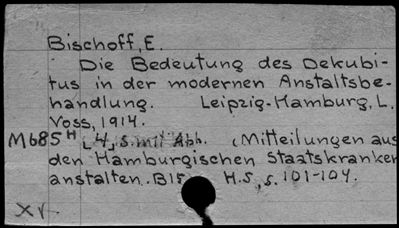 Bischoff, E.
Die Bedeutung des Dekubi-
tus in der modernen Anstaltsbe-
handlung. Leipzig-Hamburg, L.
Voss, 1914.
M685 H [4] S. mit Abb. (Mitteilungen aus
den Hamburgischen Staatskranken
anstalten. B15 H.5, S. 101-104.
XV